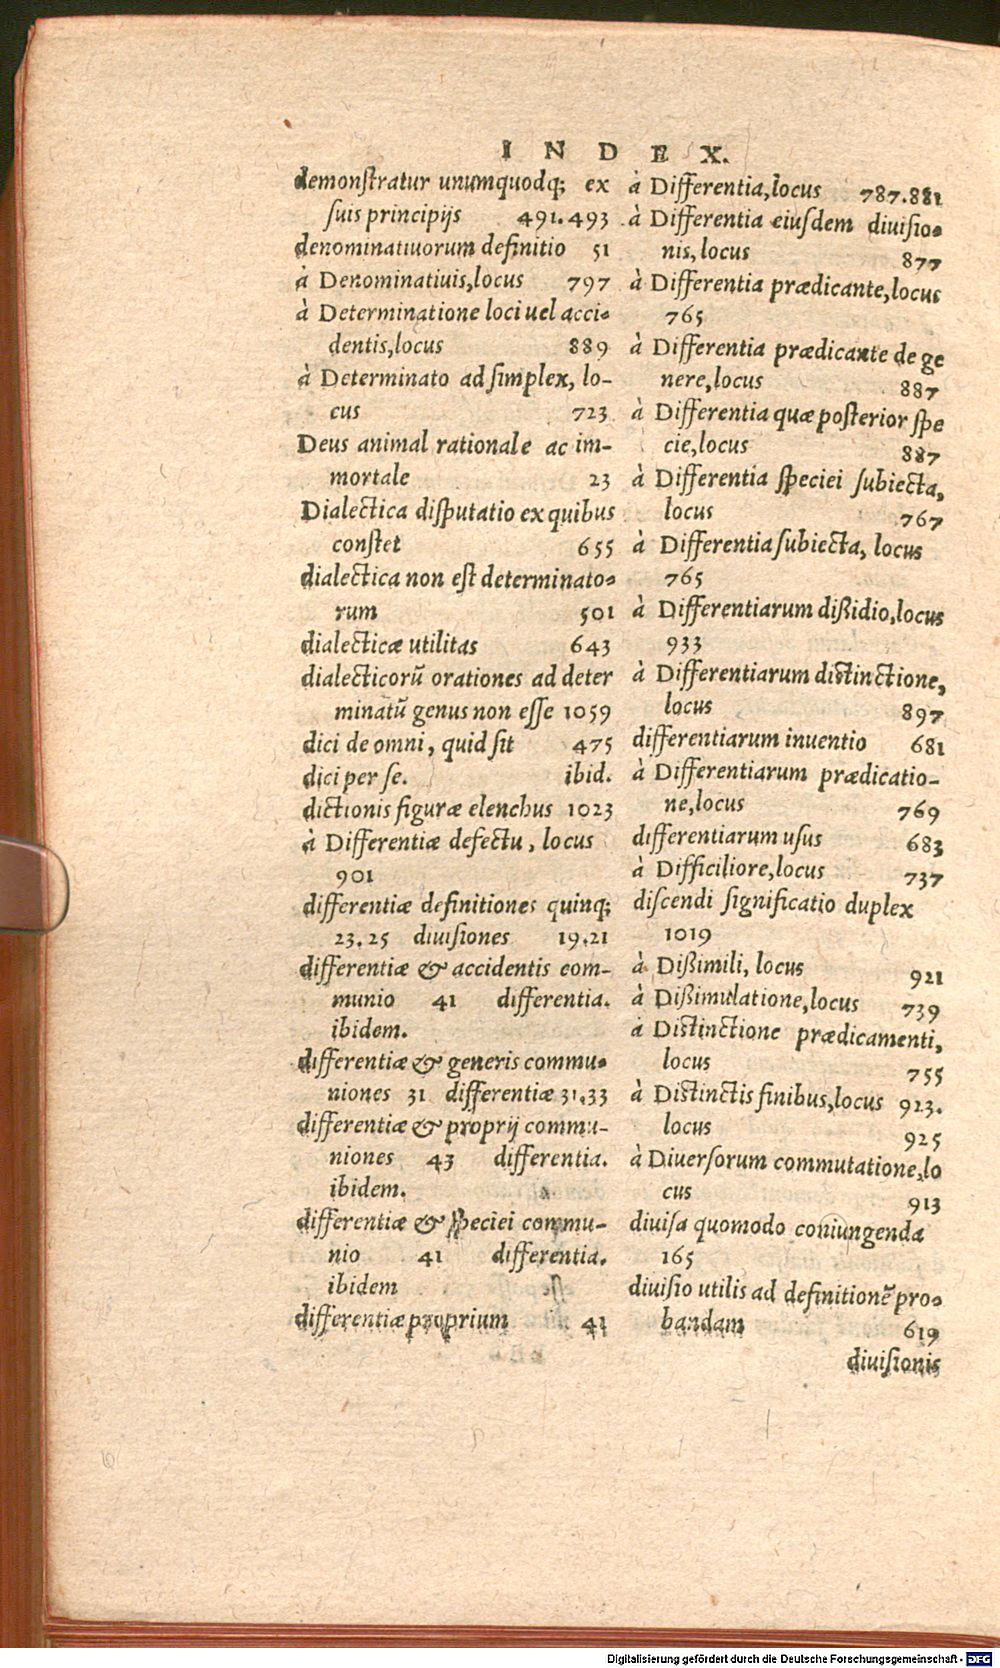 INDEX.
demonſtratur unumquodq; ex
ſuis principijs 491.493
denominatiuorum definitio 51
à Denominatiuis,locus 797
à Determinatione loci uel acci-
dentis,locus 889
à Determinato ad ſimplex, lo-
cus 723
Deus animal rationale ac im-
mortale 23
Dialectica diſputatio ex quibus
conſtet 655
dialectica non eſt determinato-
rum 501
dialecticæ utilitas 643
dialecticorũ orationes ad deter
minatũ genus non eſſe 1059
dici de omni, quid ſit 475
dici per ſe. ibid.
dictionis figuræ elenchus 1023
à Differentiæ defectu, locus
901
differentiæ definitiones quinq;
23.25 diuiſiones 19.21
differentiæ & accidentis com-
munio 41 differentia.
ibidem.
differentiæ & generis commu-
niones 31 differentiæ 31.33
differentiæ & proprij commu-
niones 43 differentia.
ibidem.
differentiæ & ſpeciei commu-
nio 41 differentia.
ibidem
differentiæ proprium 41
à Differentia,locus 787.881
à Differentia eiuſdem diuiſio-
nis,locus 877
à Differentia prædicante,locus
765
à Differentia prædicante de ge
nere,locus 887
à Differentia quæ poſterior ſpe
cie,locus 887
à Differentia ſpeciei ſubiecta,
locus 767
à Differentia ſubiecta, locus
765
à Differentiarum dißidio,locus
933
à Differentiarum diſtinctione,
locus 897
differentiarum inuentio 681
à Differentiarum prædicatio-
ne,locus 769
differentiarum uſus 683
à Difficiliore,locus 737
diſcendi ſignificatio duplex
1019
à Dißimili, locus 921
à Dißimulatione,locus 739
à Diſtinctione prædicamenti,
locus 755
à Diſtinctis finibus,locus 923.
locus 925
à Diuerſorum commutatione,lo
cus 913
diuiſa quomodo coniungenda
165
diuiſio utilis ad definitionẽ pro-
bandam 619
diuiſionis
Digitalisierung gefördert durch die Deutsche Forschungsgemeinschaft - DFG